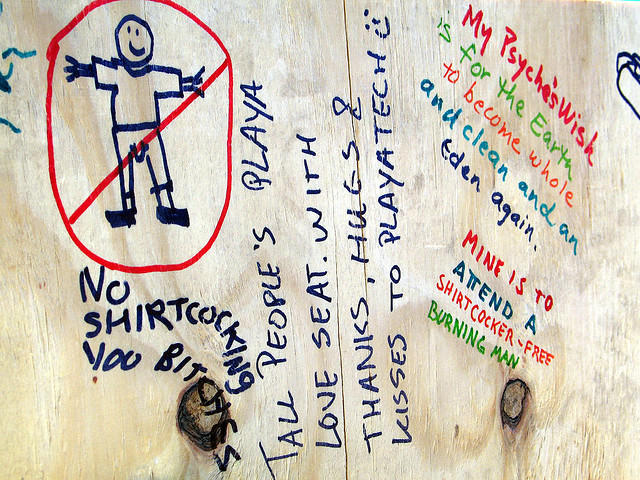 NO
SHIRTCOCKING
YOU BITCHES
TALL PEOPLE'S PLAYA
LOVE SEAT. WITH
THANKS, HUGS &
KISSES TO PLAYATECH
My Psyche's Wish
is for the Earth
to become whole
and clean and an
Eden again.
MINE IS TO
ATTEND A
SHIRTCOCKER-FREE
BURNING MAN